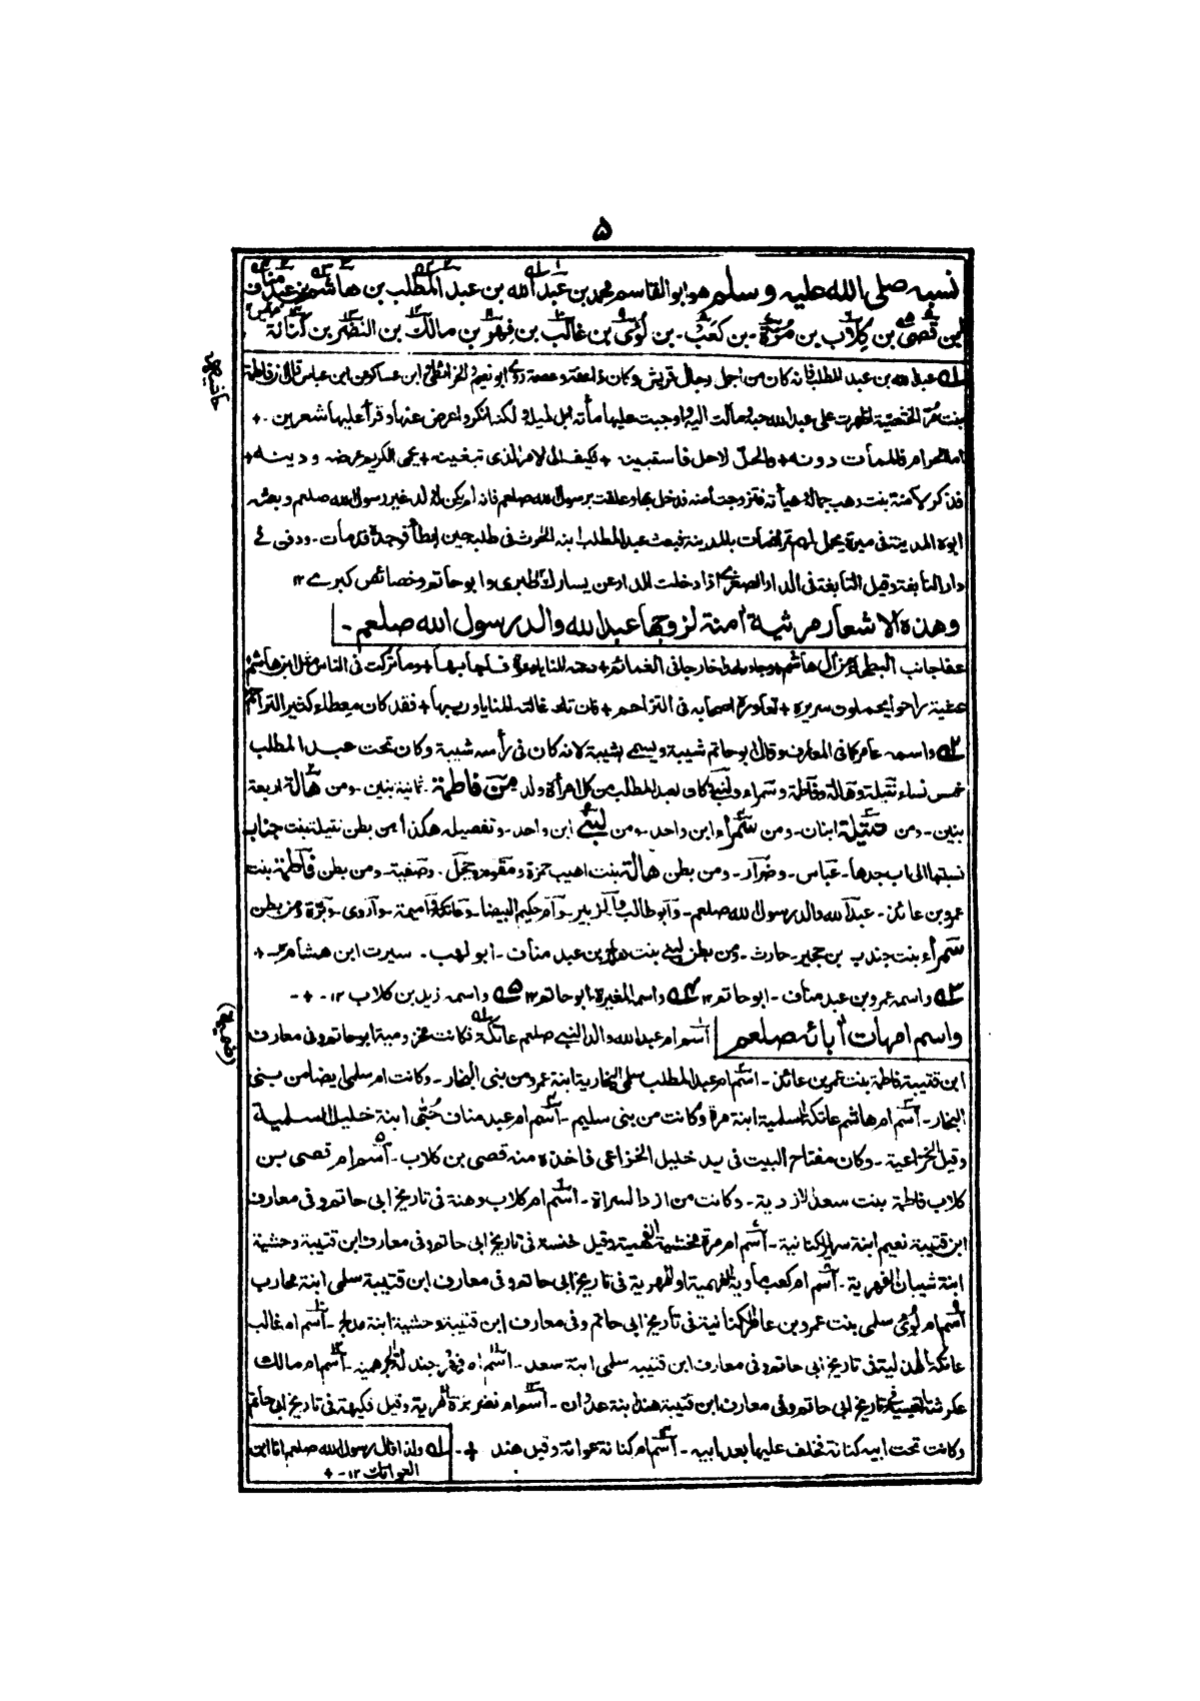 ۵
نسبه صلى الله عليه وسلم هو ابو القاسم محمد بن عبد الله بن عبد المطلب بن هاشم بن عبد مناف
بن قصى بن كلاب بن مرة ـ بن كعب ـ بن لؤى بن غالب بن فهر بن مالك بن النضر بن كنانة
عبد الله بن عبد المطلب فانه كان من اجمل رجال قريش وكان ذا عفة وعصمة روى ابو نعيم والخرائطى ابن عساكر عن ابن عباس قال ان فاطمة
بنت مر الخثعمية اظهرت على عبد الله حبه ومالت اليه واوجبت عليها مأته ابل لميله لكنه انكر واعرض عنها وقرأ عليها شعرين ـ +
اما الحرام فالممات دونه + والحل لاحل فاستبينه + فكيف الى الامر الذى تبغينه + يحمى الكريم عرضه ودينه +
فذكر لآمنة بنت وهب جماله هيأته فتزوجت آمنه فدخل بها وعلقت برسول الله صلعم فانه لم يكن له ولد غير رسول الله صلعم وبعثه
ابوه المدينة فى ميرة يحمل لهم تمرا فمات بالمدينة فبعث عبد المطلب ابنه الحرث فى طلبه حين ابطأ فوجده قد مات ـ ودفن فى
دار النابغة وقيل التابغة فى الدار الصغرے اذا دخلت الدار عن يسارك الطبرى وابو حاتم وخصائص كبرے ۱۲
وهذه الاشعار مرثية آمنة لزوجها عبد الله والد رسول الله صلعم ـ
عفا جانب البطحاء من آل هاشم + وجاور لحدا خارجا فى الغماغم + دعته المنايا دعوة فاجابها + وما تركت فى الناس مثل ابن هاشم
عشية راحوا يحملون سريره + تعاوره اصحابه فى التزاحم + فان تك غالته المنايا وريبها + فقد كان معطاء كثير التراحم
۲ واسمه عامر كما فى المعارف وقال ابو حاتم شيبة ويسمى بشيبة لانه كان فى رأسه شيبة وكان تحت عبد المطلب
خمس نساء نتيلة وهالة وفاطمة وسمراء ولبنى كان لعبد المطلب من كل امرأة ولد ـ من فاطمة ـ ثمانية بنين ـ ومن هالة اربعة
بنين ـ ومن نتيلة ابنان ـ ومن سمراء ابن واحد ـ ومن لبنى ابن واحد ـ وتفصيله هكذا من بطن نتيلة بنت جناب
نسبتها الى اب جدها ـ عباس ـ وضرار ـ ومن بطن هالة بنت اهيب حمزة ومقوم وحجل ـ وصفية ـ ومن بطن فاطمة بنت
عمرو بن عائذ ـ عبد الله والد رسول الله صلعم ـ وابو طالب والزبير ـ وام حكيم البيضا ـ وعاتكة واميمة ـ واروى ـ وبرة ومن بطن
سمراء بنت جندب بن حجير ـ حارث ـ ومن بطن لبنى بنت هاجر بن عبد مناف ـ ابو لهب ـ سيرت ابن هشام ـ +
۳ واسمه عمرو بن عبد مناف ـ ابو حاتم ۱۲ ۴ واسمه المغيرة ابو حاتم ۱۲ ۵ واسمه زيد بن كلاب ۱۲ ـ + ـ
واسم امهات آبائه صلعم اسم ام عبد الله والد النبى صلعم عاتكة فكانت مخزومية ابو حاتم وفى معارف
ابن قتيبة فاطمة بنت عمر بن عائذ ـ اسم ام عبد المطلب سلمى النجارية ابنة عمرو من بنى النجار ـ وكانت ام سلمى ايضا من بنى
النجار ـ اسم ام هاشم عاتكة السلمية ابنة مرة وكانت من بنى سليم ـ اسم ام عبد مناف حبى ابنة خليل السلمية
وقيل الخزاعية ـ وكان مفتاح البيت فى يد خليل الخزاعى فاخذه منه قصى بن كلاب ـ اسم ام قصى بن
كلاب فاطمة بنت سعد الازدية ـ وكانت من ازد السراة ـ اسم ام كلاب وهنة فى تاريخ ابى حاتم وفى معارف
ابن قتيبة نعيم ابنة سرير الكنانية ـ اسم ام مرة مخشية الفهمية وقيل خنسة فى تاريخ ابى حاتم وفى معارف ابن قتيبة وحشية
ابنة شيبان الفهرية ـ اسم ام كعب ماوية الفهمية او الفهرية فى تاريخ ابى حاتم وفى معارف ابن قتيبة سلمى ابنة محارب
اسم ام لؤى سلمى بنت عمرو بن عامر الكنانية فى تأريخ ابى حاتم وفى معارف ابن قتيبة وحشية ابنة مدلج ـ اسم ام غالب
عاتكة الهذلية فى تاريخ ابى حاتم وفى معارف ابن قتيبه سلمى ابنة سعد ـ اسم ام فهر جندلة الجرهميه ـ اسم ام مالك
عكرشة القيسية فى تاريخ ابى حاتم وفى معارف ابن قتيبة هند ابنة عدوان ـ اسم ام نضر برة المرية وقيل فكيهة فى تاريخ ابى حاتم
وكانت تحت ابيه كنانة فخلف عليها بعد ابيه ـ اسم ام كنانة عوانة وقيل هند + ـ
ولذا قال رسول الله صلعم انا ابن
العواتك ۱۲ ـ +